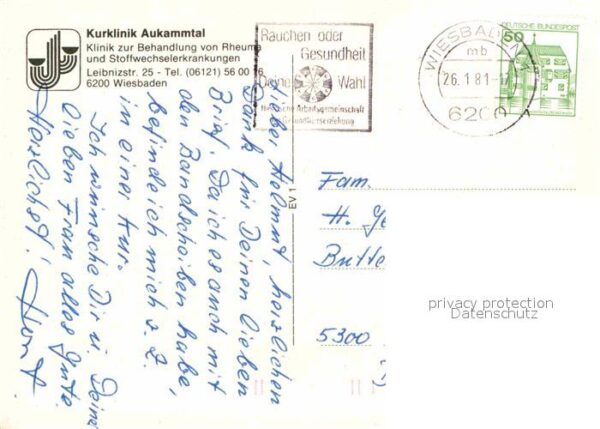 Kurklinik Aukammtal
Klinik zur Behandlung von Rheuma
und Stoffwechselerkrankungen
Leibnizstr. 25 - Tel. (06121) 56 00 16
6200 Wiesbaden
Rauchen oder
Gesundheit
Deine Wahl
Hessische Arbeitsgemeinschaft
Gesundheitserziehung
WIESBADEN
mb
26.1.81
6200
DEUTSCHE BUNDESPOST
50
Lieber Helmut, herzlichen
Dank für Deinen lieben
Brief. Da ich es auch mit
den Bandscheiben habe,
befinde ich mich z. Z.
in einer Kur.
Ich wünsche Dir u. Deiner
lieben Frau alles Gute.
Herzlichst! Horst.
EV 1
Fam.
H. Ge
Butte
5300
privacy protection
Datenschutz